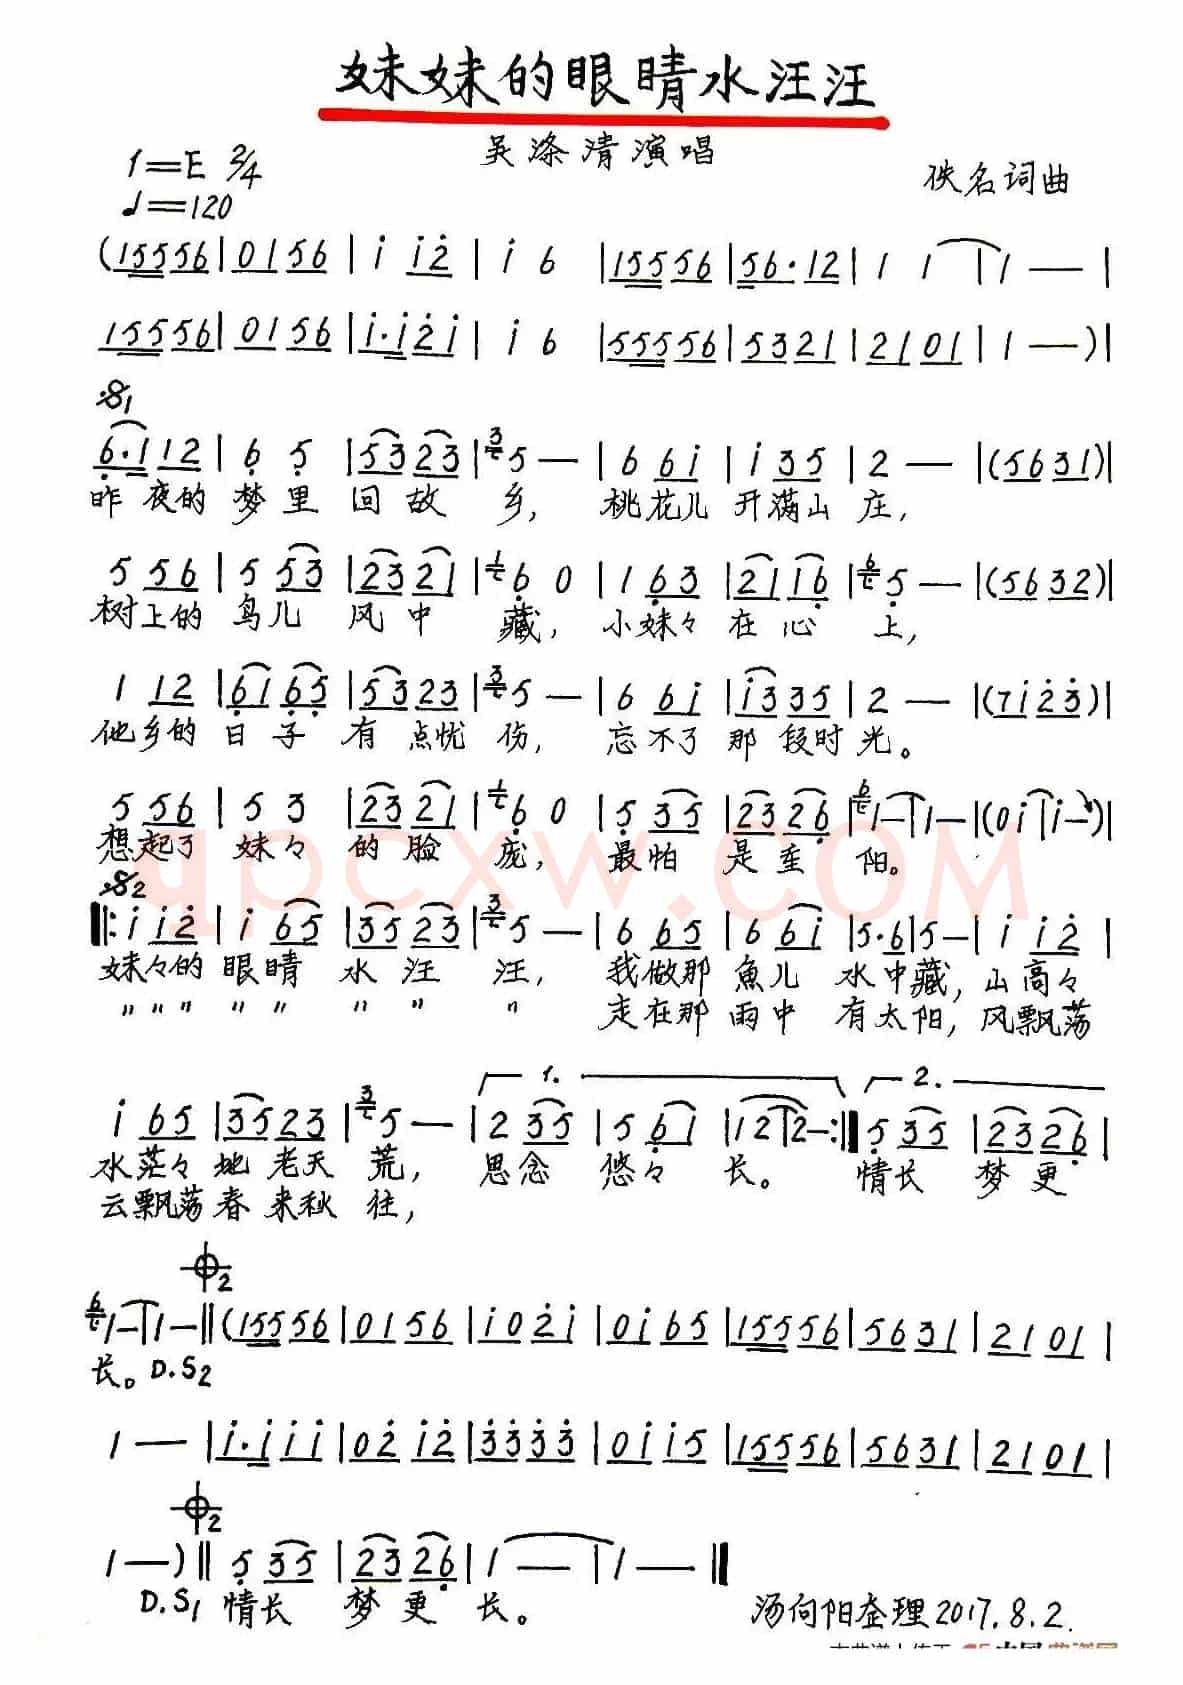 妹妹的眼睛水汪汪
吴涤清演唱
1=E 2/4
佚名词曲
♩=120
(15556|0156|i i2|i 6|15556|56·12|1 1|1 —|
15556|0156|i·i2i|i 6|55556|5321|2101|1 —)|
𝄋1
6·112|6 5|5323|5 —|6 6i|i 35|2 —|(5631)|
昨夜的梦里回故乡,桃花儿开满山庄,
5 56|5 53|2321|6 0|1 63|2116|5 —|(5632)|
树上的鸟儿风中藏,小妹々在心上,
1 12|6165|5323|5 —|6 6i|i335|2 —|(7i23)|
他乡的日子有点忧伤,忘不了那段时光。
5 56|5 3|2321|6 0|5 35|2326|1—|1—|(0i|i—)|
想起了妹々的脸庞,最怕是重阳。
𝄋2
‖:i i2|i 65|3523|5 —|6 65|6 6i|5·6|5—|i i2|
妹々的眼睛水汪汪,我做那魚儿水中藏,山高々
〃〃〃〃〃〃〃〃走在那雨中有太阳,风飘荡
1. 2.
i 65|3523|5 —|2 35|5 61|12|2—:‖5 35|2326|
水茫々地老天荒,思念悠々长。情长梦更
云飘荡春来秋往,
𝄌2
1—|1—‖(15556|0156|i02i|0i65|15556|5631|2101|
长。D.S2
1 —|i·iii|02i2|3333|0ii5|15556|5631|2101|
𝄌2
1—)‖5 35|2326|1 —|1 —‖
D.S1 情长梦更长。
汤向阳整理2017.8.2.
qpcxw.com